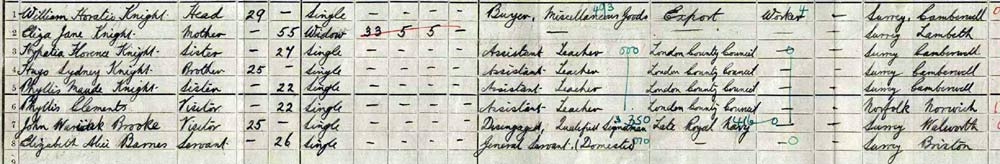 1 William Horatio Knight. Head 29 - Single - - - - Buyer, Miscellaneous Goods 493 Export Worker 4 - Surrey, Camberwell
2 Eliza Jane Knight. Mother - 55 Widow 33 5 5 - - - - - Surrey Lambeth
3 Hypatia Florence Knight. Sister - 27 Single - - - - Assistant Teacher 000 London County Council - 0 - Surrey Camberwell
4 Hugo Sydney Knight. Brother 25 - Single - - - - Assistant Teacher London County Council - - Surrey Camberwell
5 Phyllis Maude Knight. Sister - 22 Single - - - - Assistant Teacher London County Council - - Surrey Camberwell
6 Phyllis Clements. Visitor - 22 Single - - - - Assistant Teacher London County Council - - Norfolk Norwich
7 John Brooke Visitor 25 - Single - - - - Disengaged, Qualified Signalman 3 750 Late Royal Navy 0 - Surrey Walworth
8 Elizabeth Alice Barnes Servant. - 26 Single - - - - General Servant (Domestic) - 0 - Surrey Brixton